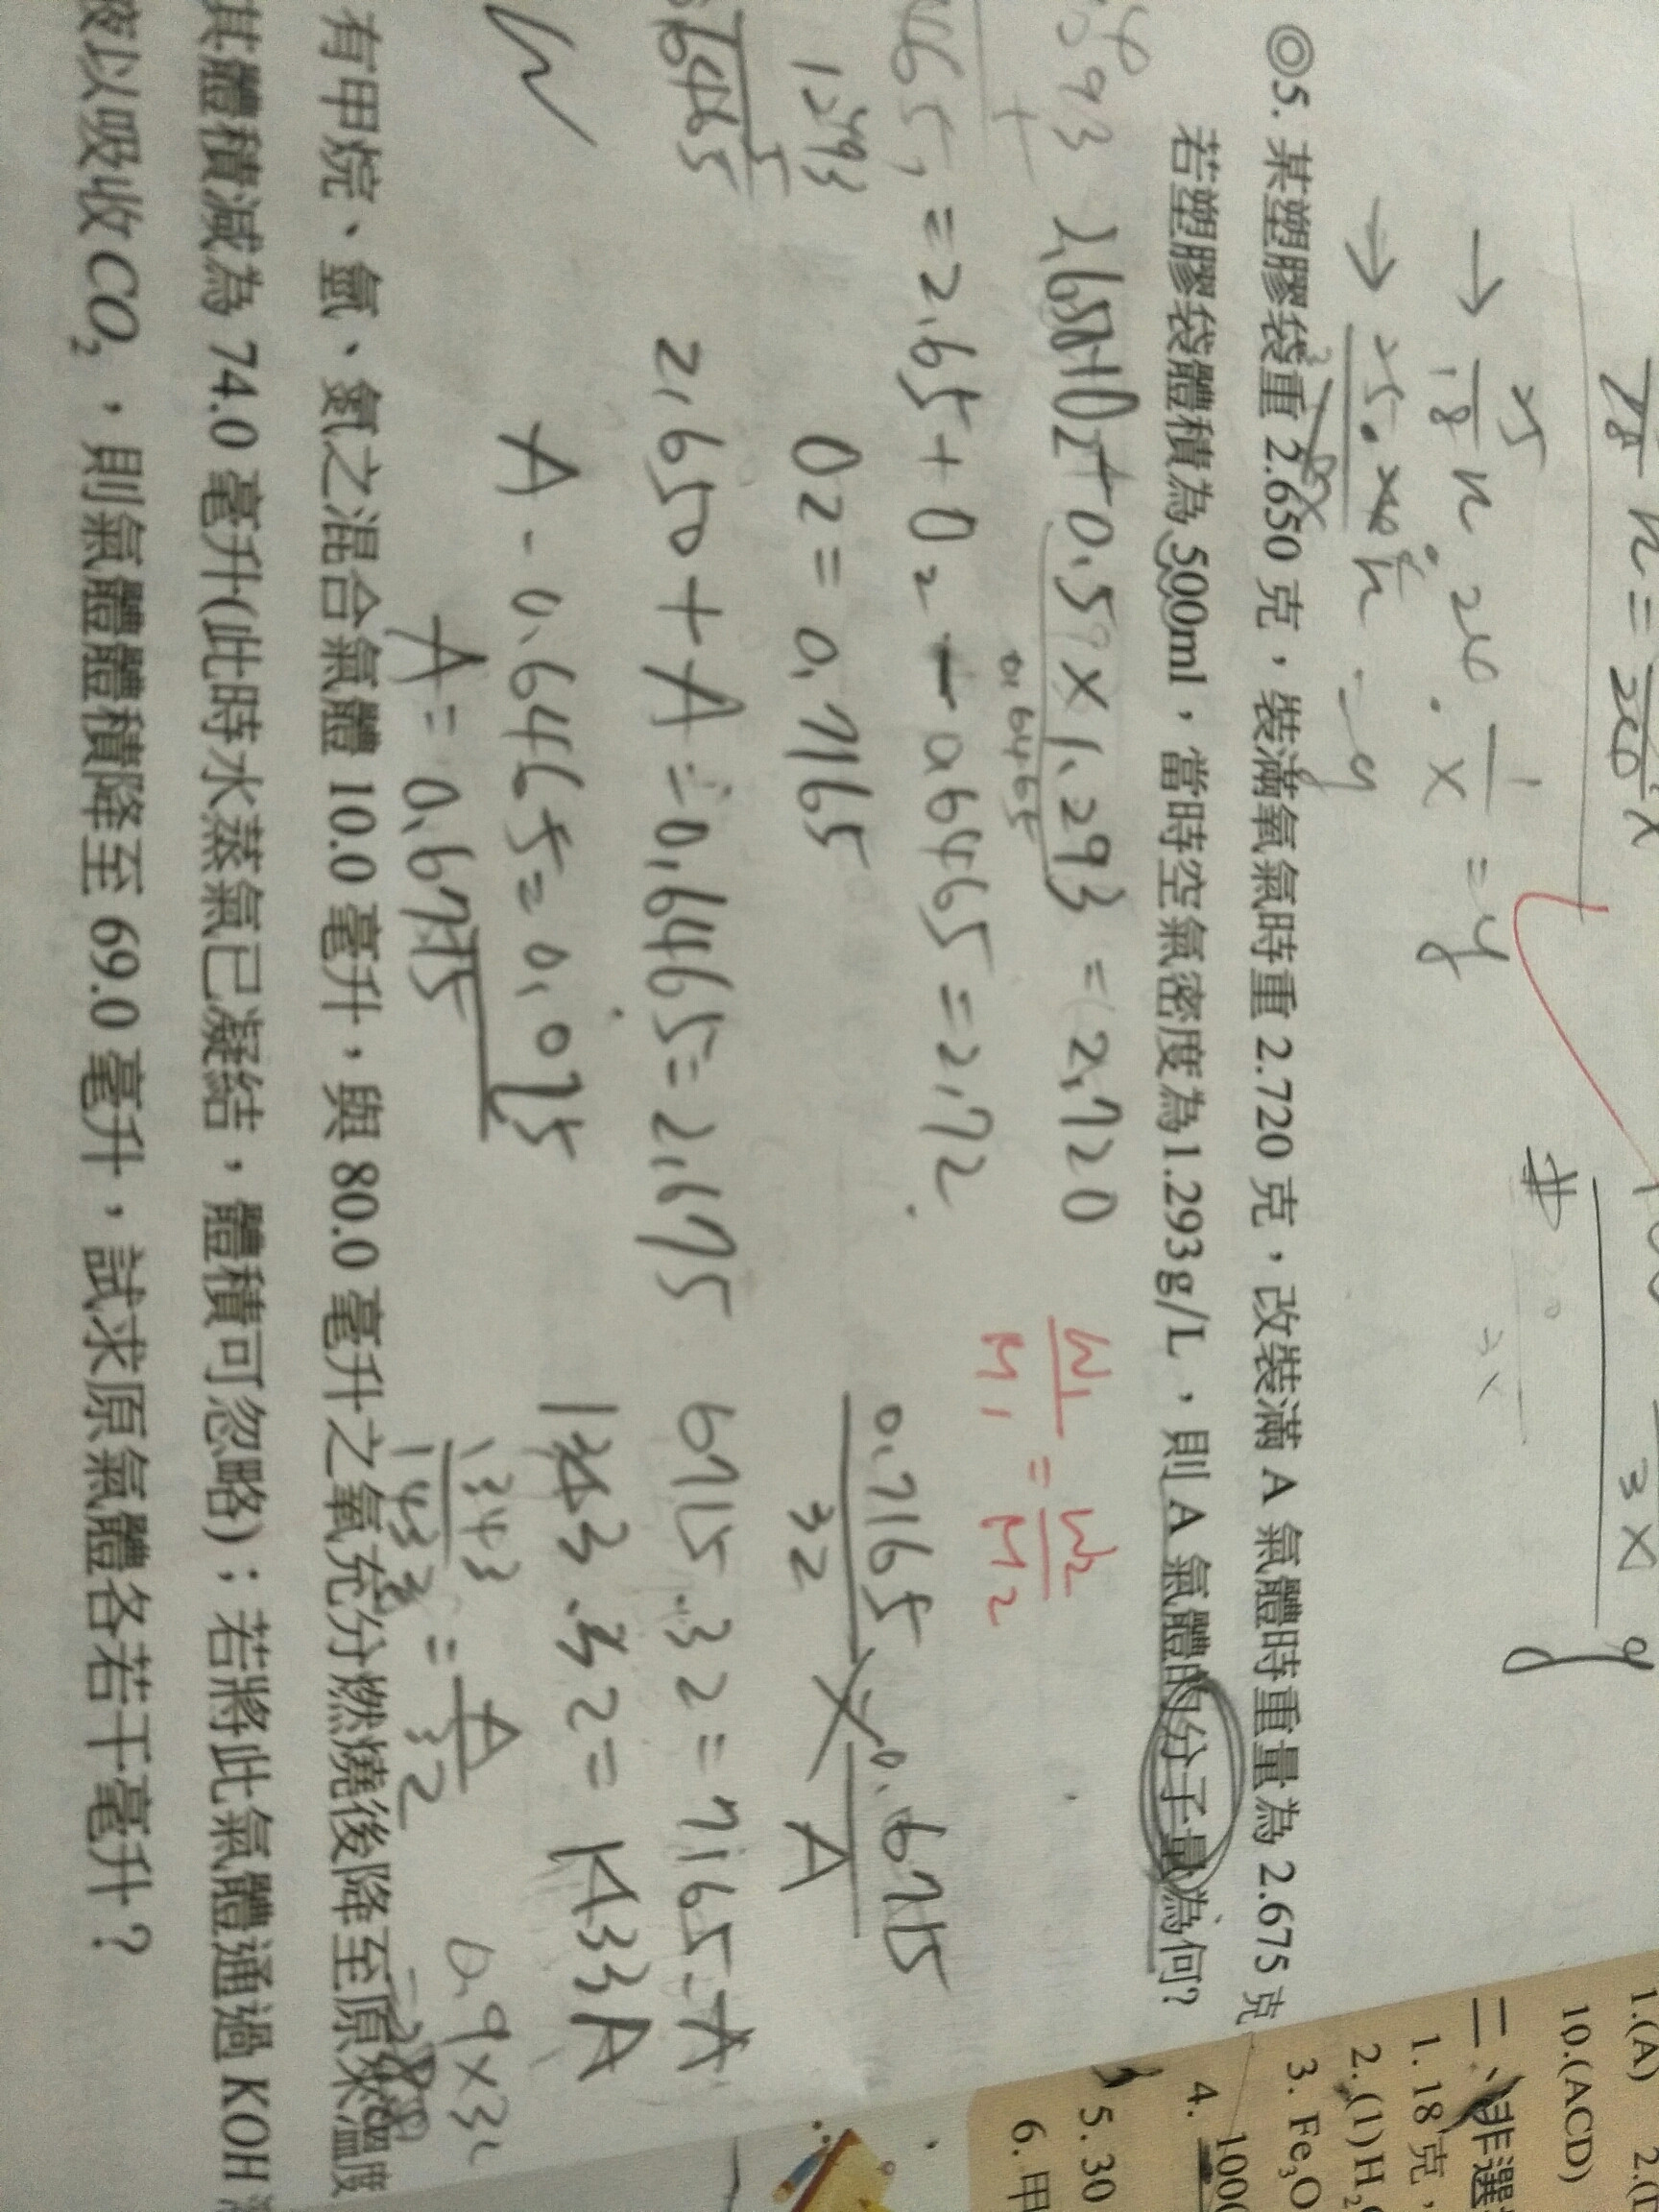 ◎5. 某塑膠袋重 2.650 克，裝滿氧氣時重 2.720 克，改裝滿 A 氣體時重量為 2.675 克
若塑膠袋體積為 500ml，當時空氣密度為1.293g/L，則A氣體的分子量為何?
2.650+O2+0.5×1.293=2.720
0.6465
=2.65+O2-0.6465=2.72
O2=0.7165
2.650+A-0.6465=2.675
A-0.6465=0.025
A=0.6715
1293
6465
W1/M1=W2/M2
0.7165/32 0.6715/A
6715.32=7165.A
1343.32=1433A
1343/1433=A/32
有甲烷、氫、氮之混合氣體 10.0 毫升，與 80.0 毫升之氧充分燃燒後降至原來溫度
其體積減為 74.0 毫升(此時水蒸氣已凝結，體積可忽略)；若將此氣體通過 KOH
液以吸收 CO2，則氣體體積降至 69.0 毫升，試求原氣體各若干毫升？
1.(A)
10.(ACD)
二、非選
1. 18克，
2. (1)H
3. Fe3O
4. 100
5. 30
6. 甲